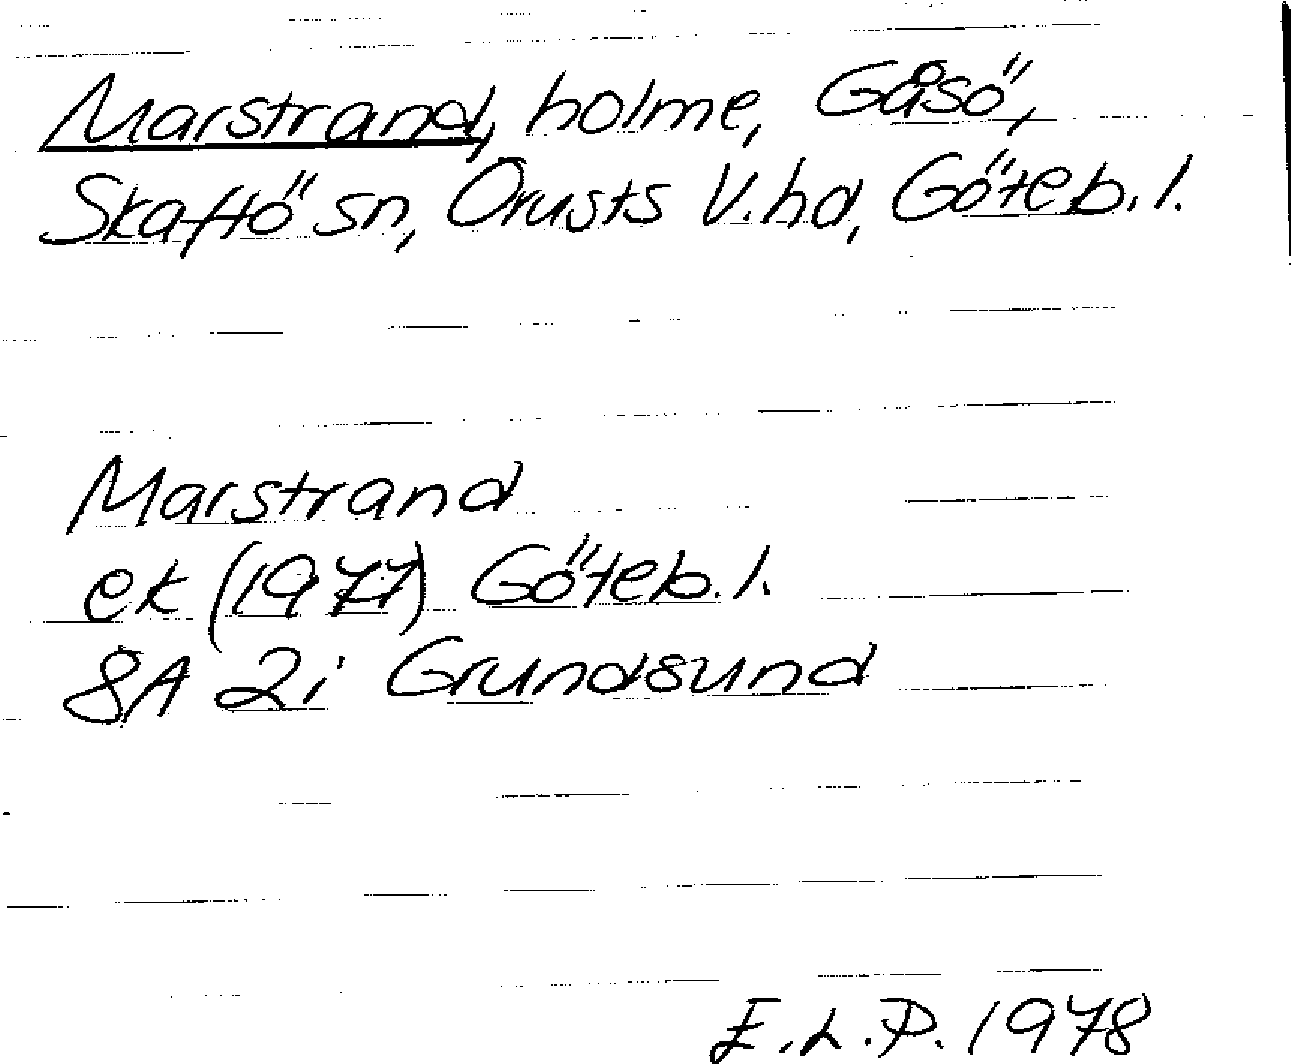 Marstrand, holme, Gåsö,
Skaftö sn, Orusts V. hd, Göteb. l.
Marstrand
ek (1977) Göteb. l.
8A 2i Grundsund
E.L.P. 1978